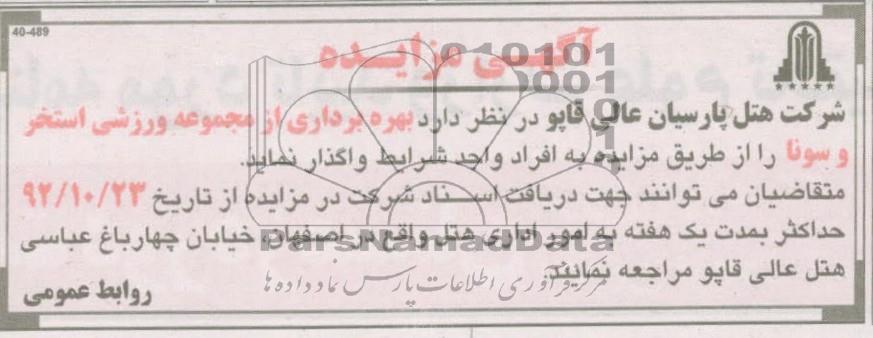 40-489
آگهی مزایده
شرکت هتل پارسیان عالی قاپو در نظر دارد بهره برداری از مجموعه ورزشی استخر
و سونا را از طریق مزایده به افراد واجد شرایط واگذار نماید.
متقاضیان می توانند جهت دریافت اسناد شرکت در مزایده از تاریخ ۹۲/۱۰/۲۳
حداکثر بمدت یک هفته به امور اداری هتل واقع در اصفهان، خیابان چهارباغ عباسی
هتل عالی قاپو مراجعه نمایند.
روابط عمومی
ParsNamadData
مرکز فرآوری اطلاعات پارس نماد داده ها